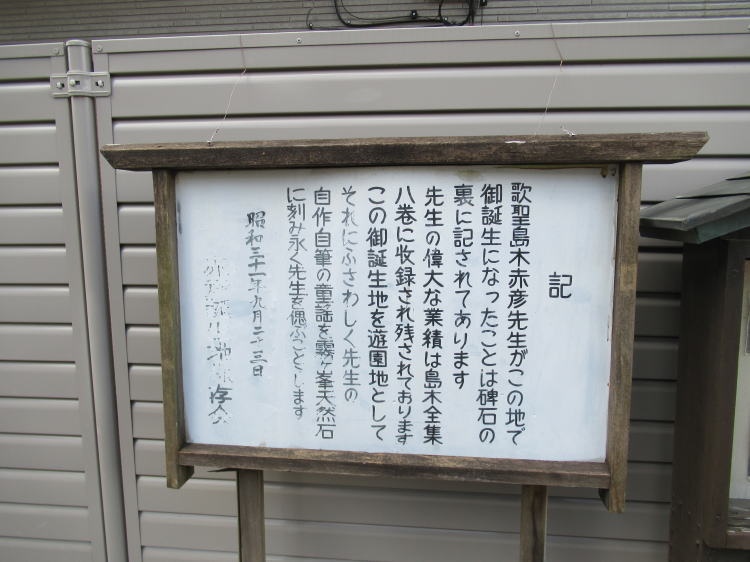 記
歌聖島木赤彦先生がこの地で
御誕生になったことは碑石の
裏に記されてあります
先生の偉大な業績は島木全集
八巻に收録され残されております
この御誕生地を遊園地として
それにふさわしく先生の
自作自筆の童謡を霧ケ峯天然石
に刻み永く先生を偲ぶことゝします
昭和三十一年九月二十三日
存会